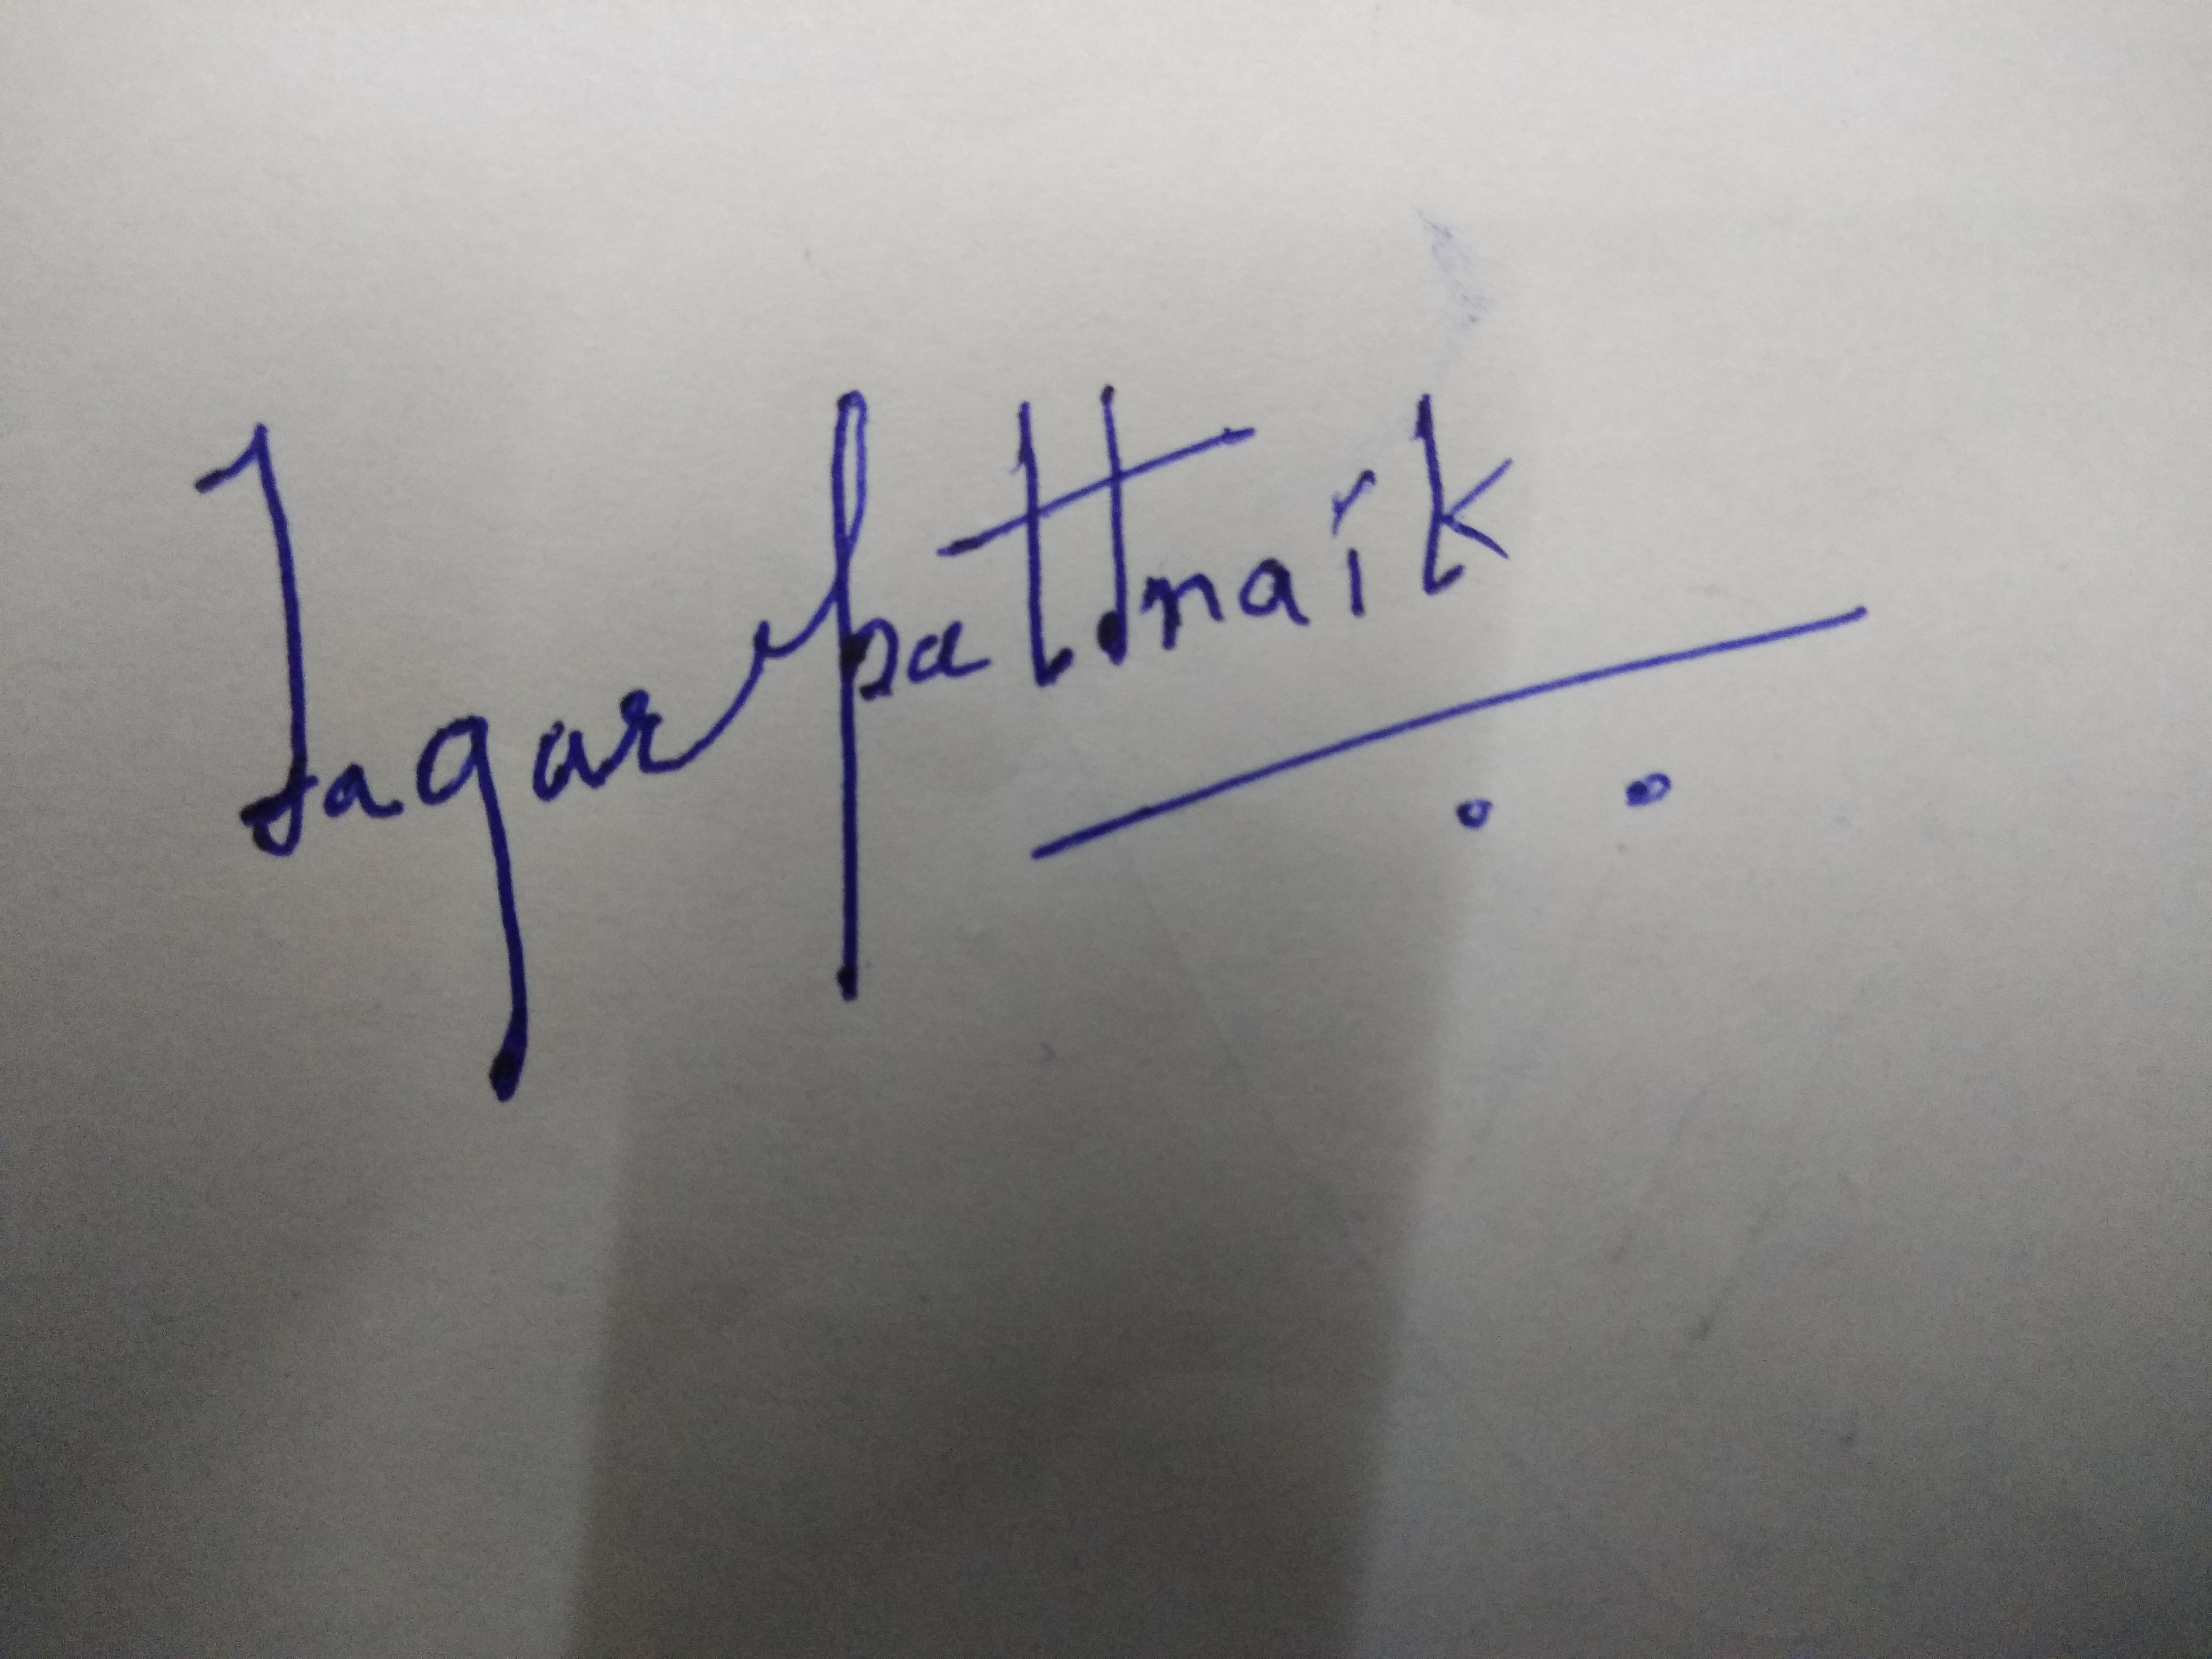 Jagar pattnaik